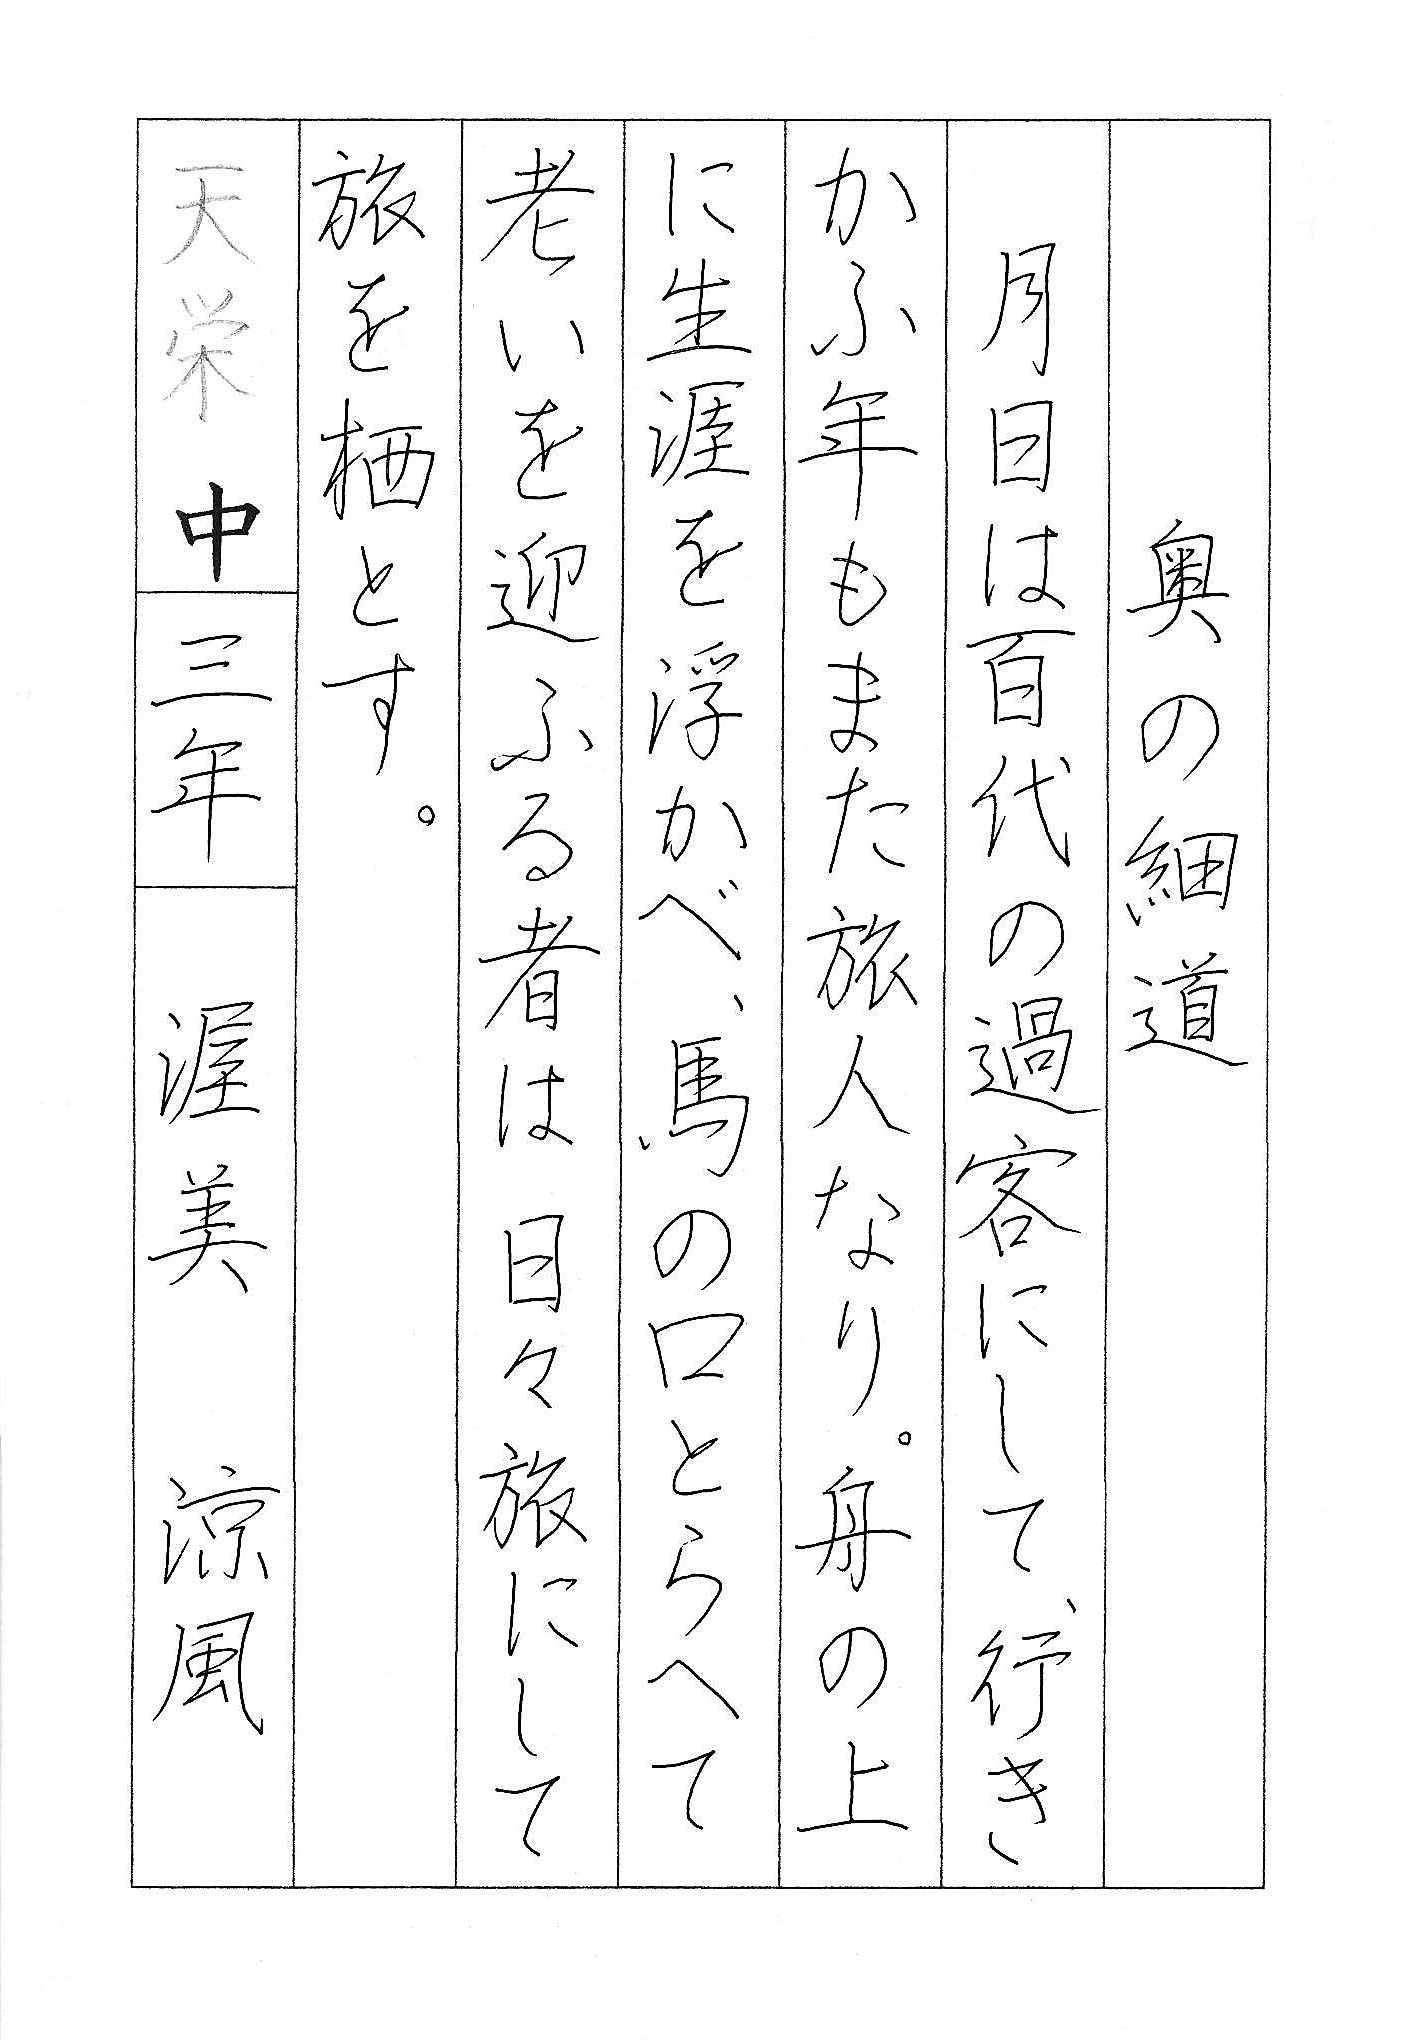 奥の細道
月日は百代の過客にして、行き
かふ年もまた旅人なり。舟の上
に生涯を浮かべ、馬の口とらへて
老いを迎ふる者は日々旅にして
旅を栖とす。
天栄中 三年 渥美 涼風